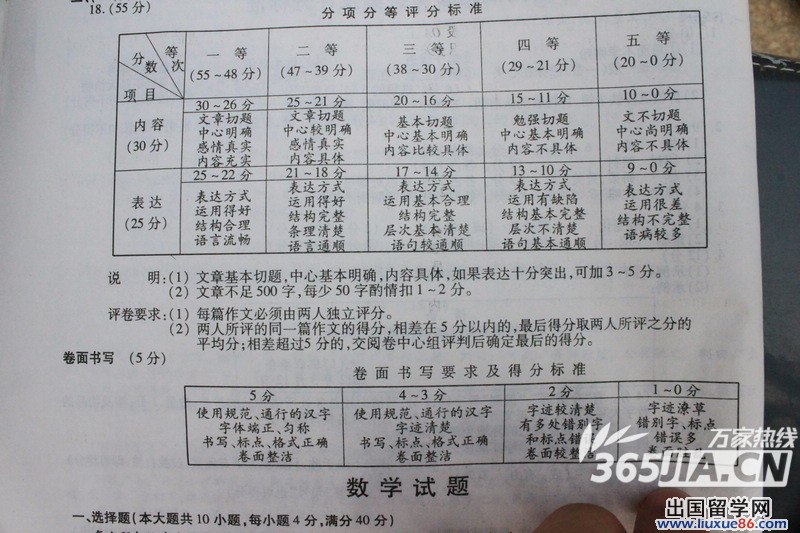 18.(55分)
分项分等评分标准
等次
分数
项目
一 等
(55~48分)
二 等
(47~39分)
三 等
(38~30分)
四 等
(29~21分)
五 等
(20~0分)
内容
(30分)
30~26分
文章切题
中心明确
感情真实
内容充实
25~21分
文章切题
中心较明确
感情真实
内容具体
20~16分
基本切题
中心基本明确
内容比较具体
15~11分
勉强切题
中心基本明确
内容不具体
10~0分
文不切题
中心尚明确
内容不具体
表达
(25分)
25~22分
表达方式
运用得好
结构合理
语言流畅
21~18分
表达方式
运用得好
结构完整
条理清楚
语言通顺
17~14分
表达方式
运用基本合理
结构完整
层次基本清楚
语句较通顺
13~10分
表达方式
运用有缺陷
结构基本完整
层次不清楚
语句基本通顺
9~0分
表达方式
运用很差
结构不完整
语病较多
说 明:(1) 文章基本切题,中心基本明确,内容具体,如果表达十分突出,可加3~5分。
(2) 文章不足500字,每少50字酌情扣1~2分。
评卷要求:(1) 每篇作文必须由两人独立评分。
(2) 两人所评的同一篇作文的得分,相差在5分以内的,最后得分取两人所评之分的
平均分;相差超过5分的,交阅卷中心组评判后确定最后的得分。
卷面书写 (5分)
卷面书写要求及得分标准
5分
使用规范、通行的汉字
字体端正、匀称
书写、标点、格式正确
卷面整洁
4~3分
使用规范、通行的汉字
字迹清楚
书写、标点、格式正确
卷面整洁
2分
字迹较清楚
有多处错别字
和标点错
卷面较整洁
1~0分
字迹潦草
错别字、标点
错误多
数学试题
一、选择题(本大题共10小题,每小题4分,满分40分)
万家热线
365JIA.CN
出国留学网
www.liuxue86.com